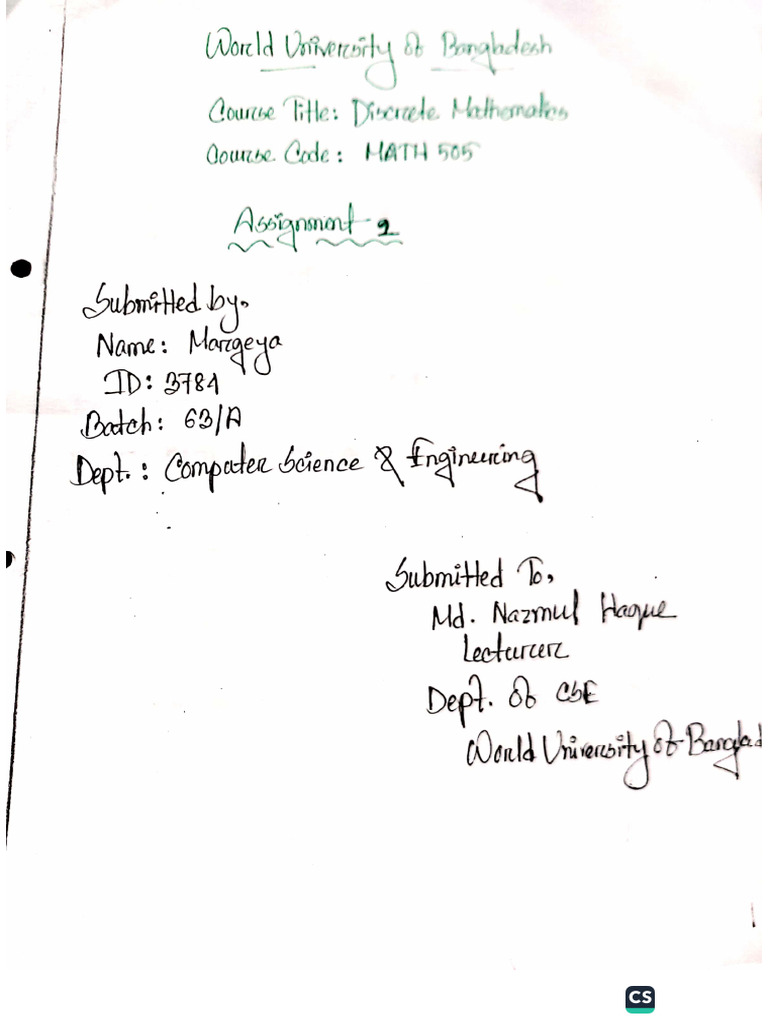 World University of Bangladesh
Course Title: Discrete Mathematics
Course Code: MATH 505
Assignment-2
Submitted by,
Name: Margeya
ID: 3781
Batch: 63/A
Dept.: Computer Science & Engineering
Submitted To,
Md. Nazmul Haque
Lecturer
Dept. of CSE
World University of Banglad
CS